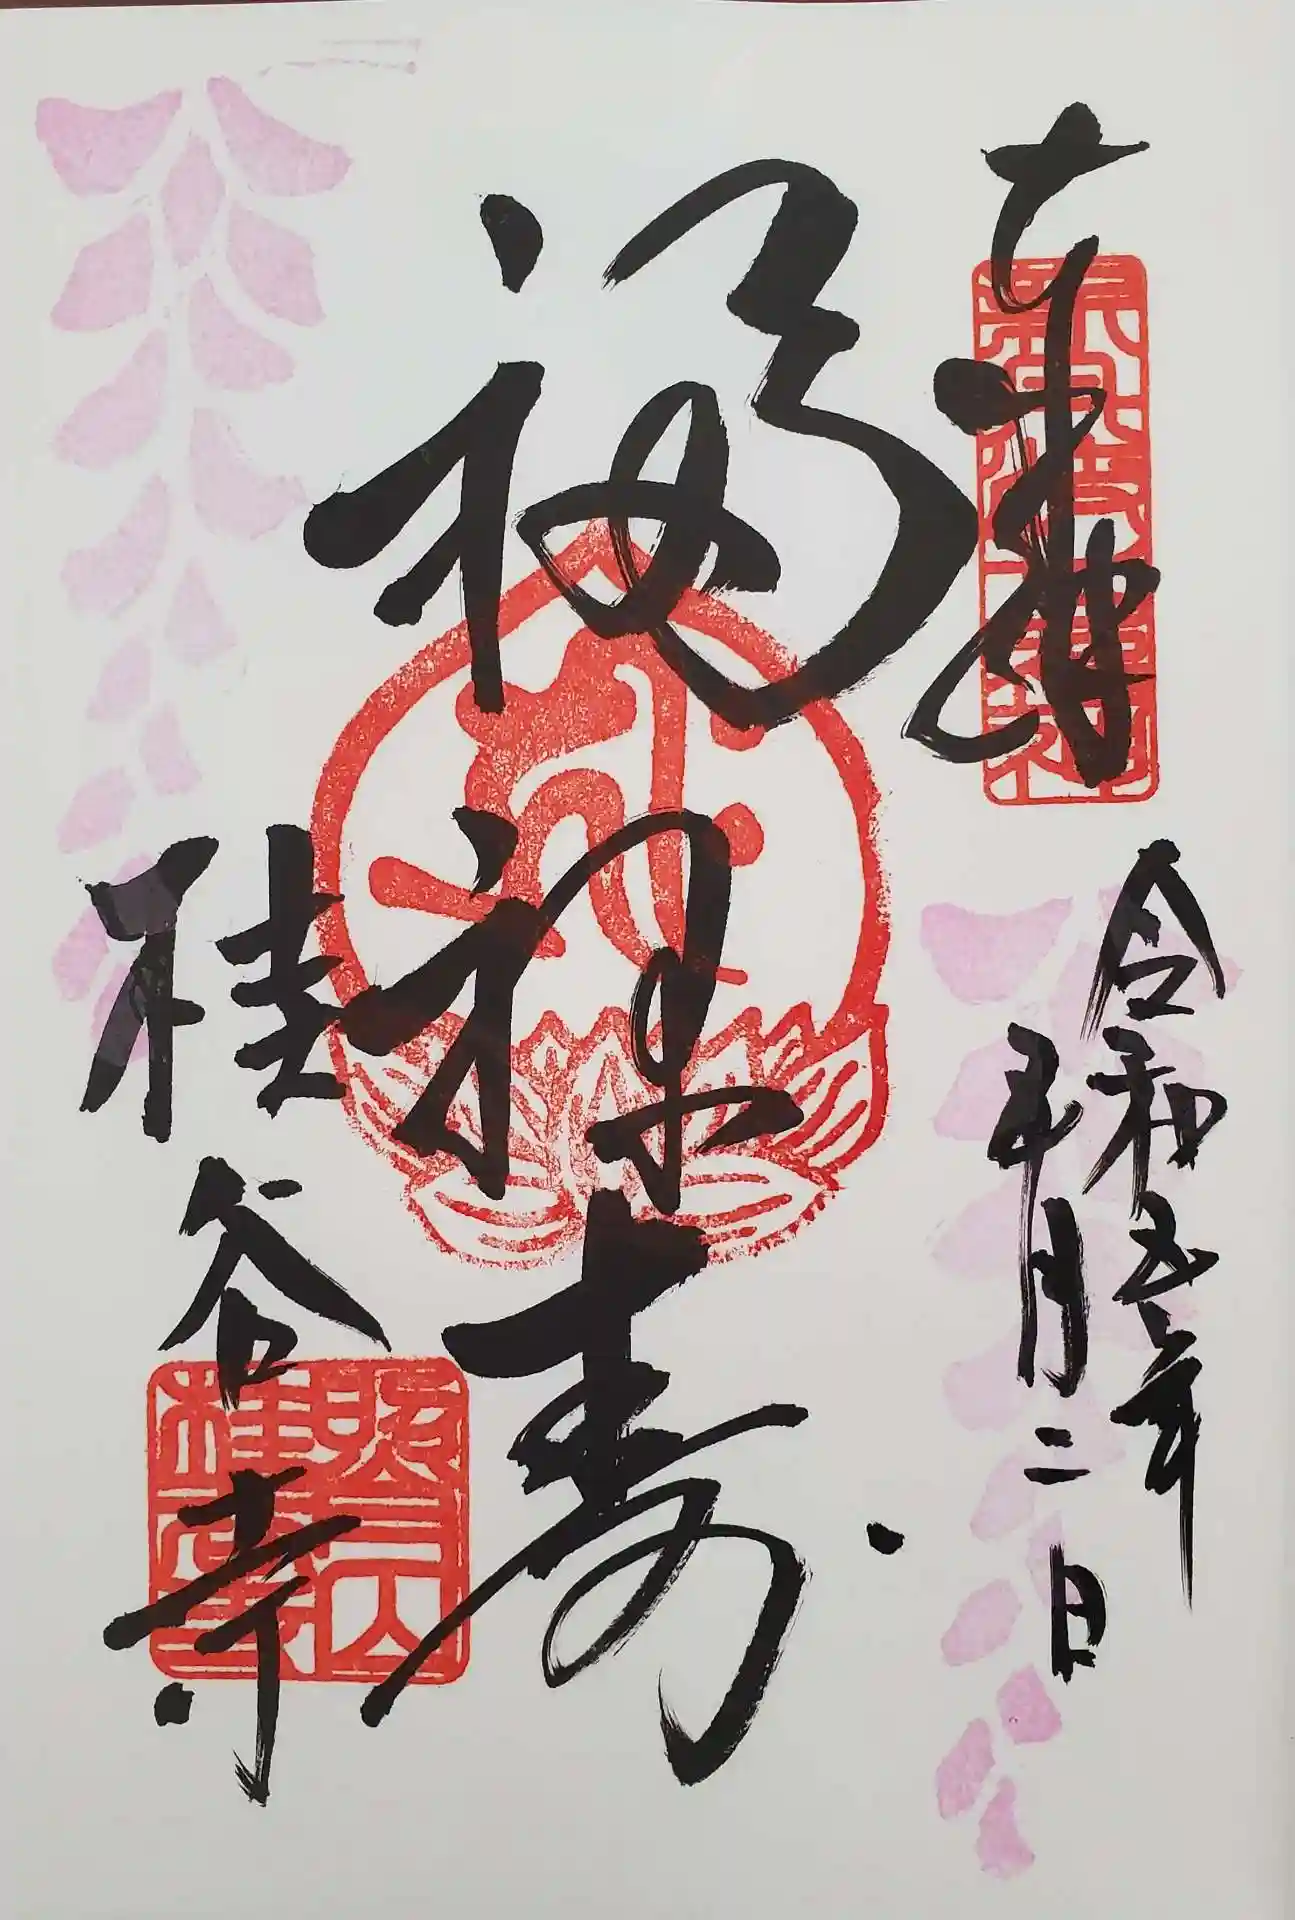 奉拝
令和五年
五月二日
福禄寿
桂谷寺
桂谷寺